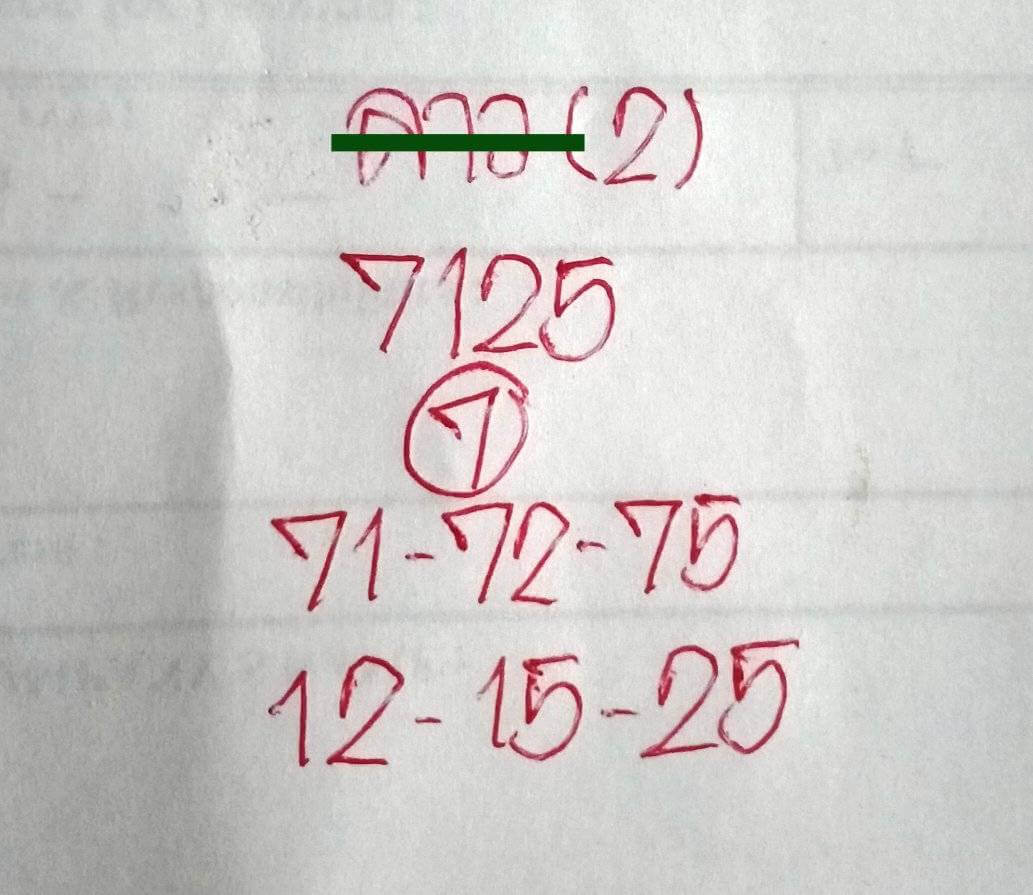 ลาว (2)
7125
7
71-72-75
12-15-25